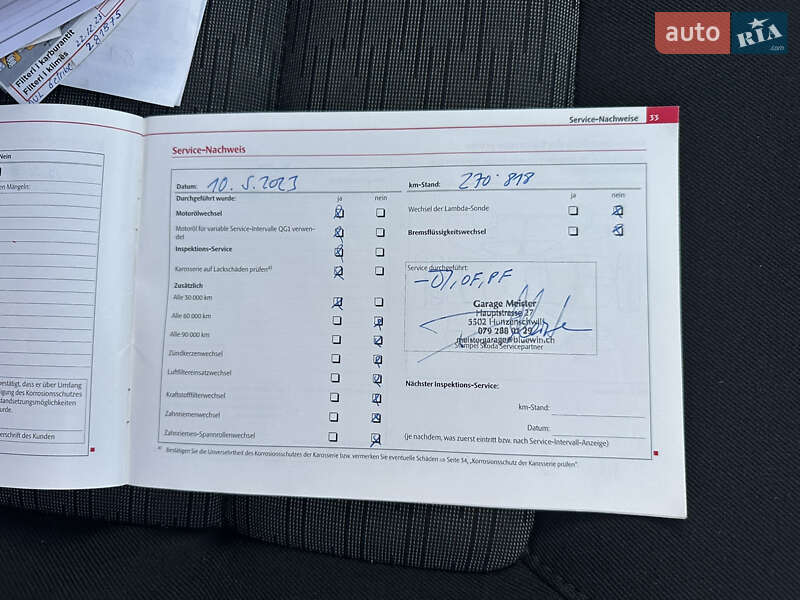 auto RIA.com
22.12.23
Filteri i karburantit
281875
Filteri i klimës
Service-Nachweise 33
Nein
en Mängeln:
Service-Nachweis
Datum: 10.5.2023
km-Stand: 270.818
Durchgeführt wurde: ja nein
ja nein
Motorölwechsel
Wechsel der Lambda-Sonde
Motoröl für variable Service-Intervalle QG1 verwen-
det
Bremsflüssigkeitswechsel
Inspektions-Service
Karosserie auf Lackschäden prüfen a)
Service durchgeführt:
-Öl, ÖF, PF
Zusätzlich
Alle 30 000 km
Garage Meister
Hauptstrasse 27
Alle 60 000 km
5502 Hunzenschwil
079 288 01 29
Alle 90 000 km
meistergarage@bluewin.ch
Stempel Škoda Servicepartner
Zündkerzenwechsel
Luftfiltereinsatzwechsel
Nächster Inspektions-Service:
Kraftstofffilterwechsel
km-Stand:
Zahnriemenwechsel
Datum:
Zahnriemen-Spannrollenwechsel
(je nachdem, was zuerst eintritt bzw. nach Service-Intervall-Anzeige)
a) Bestätigen Sie die Unversehrtheit des Korrosionsschutzes der Karosserie bzw. vermerken Sie eventuelle Schäden ⇒ Seite 34, „Korrosionsschutz der Karosserie prüfen“.
bestätigt, dass er über Umfang
igung des Korrosionsschutzes
standsetzungsmöglichkeiten
urde.
erschrift des Kunden